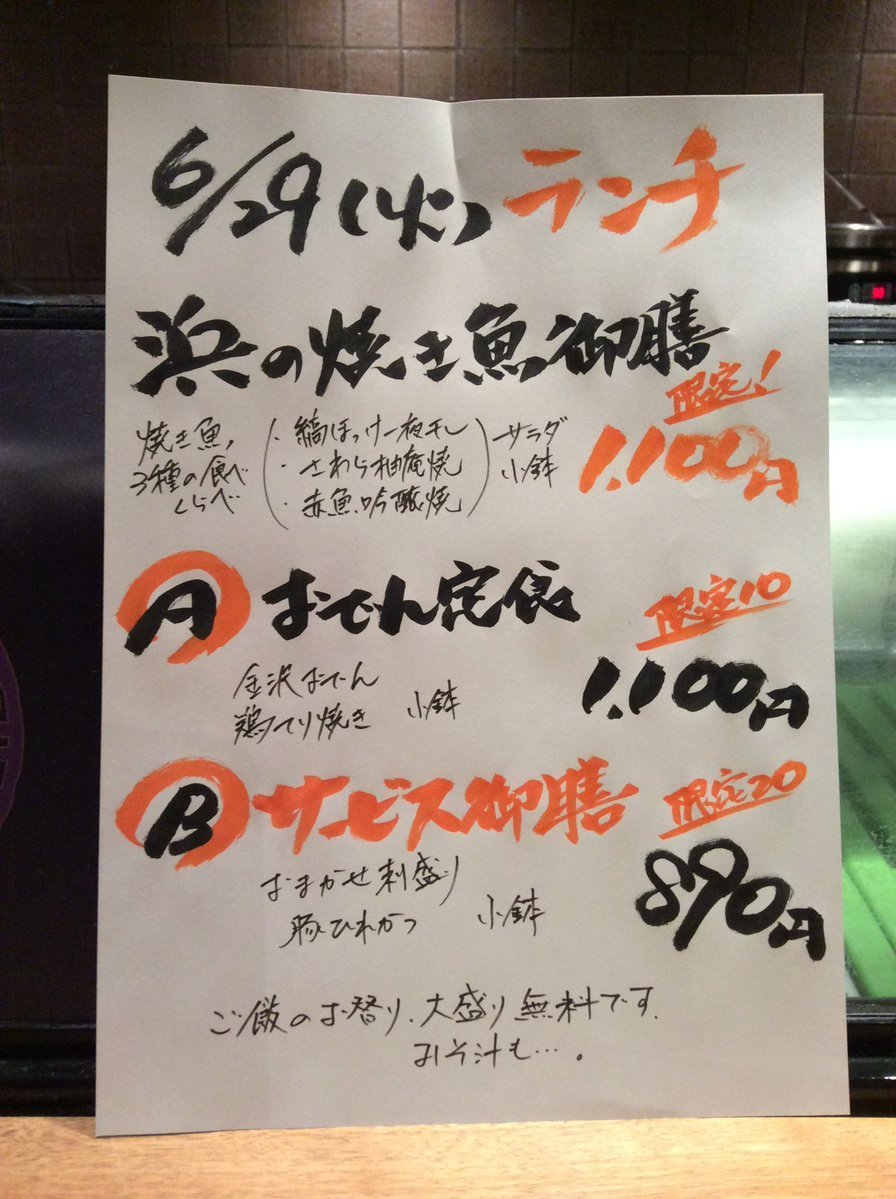 6/29(火)ランチ
浜の焼き魚御膳
限定!
1,100円
焼き魚、
3種の食べ
くらべ
・縞ほっけ一夜干し
・さわら柚庵焼
・赤魚吟醸焼
サラダ
小鉢
A おでん定食
限定10
1,100円
金沢おでん
鶏てり焼き 小鉢
B サービス御膳
限定20
890円
おまかせ刺盛り
豚ひれかつ 小鉢
ご飯のお替り、大盛り無料です.
みそ汁も…。